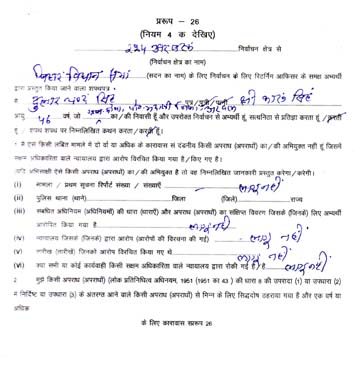 प्ररूप – 26
(नियम 4 क देखिए)
224 अरवल निर्वाचन क्षेत्र से
(निर्वाचन क्षेत्र का नाम)
बिहार विधान सभा (सदन का नाम) के लिए निर्वाचन के लिए रिटर्निंग आफिसर के समक्ष अभ्यर्थी
द्वारा प्रस्तुत किया जाने वाला शपथपत्र
सिंह पुत्र/पुत्री/पत्नी श्री सिंह
आयु 46 वर्ष, जो का/की निवासी हूँ और उपरोक्त निर्वाचन से अभ्यर्थी हूं, सत्यनिष्ठा से प्रतिज्ञा करता हूँ /करती
हूँ / शपथ शपथ पर निम्नलिखित कथन करता/करती हूँ।
1 मैं ऐसे किसी लंबित मामले में दो वर्ष या अधिक के कारावास से दंडनीय किसी अपराध (अपराधों) का/की अभियुक्त नहीं हूँ जिसमें
सक्षम अधिकारिता वाले न्यायालय द्वारा आरोप विरचित किया गया है/किए गए है।
यदि अभिसाक्षी ऐसे किसी अपराध (अपराधों) का/की अभियुक्त है तो वह निम्नलिखित जानकारी प्रस्तुत करेगा/करेगी।
(i) मामला / प्रथम सूचना रिपोर्ट संख्या / संख्याएँ लागू नहीं
(ii) पुलिस थाना (थाने) जिला (जिले) राज्य
(iii) संबंधित अधिनियम (अधिनियमों) की धारा (धाराएँ) और अपराध (अपराधों) का संक्षिप्त विवरण जिसके (जिनके) लिए अभ्यर्थी
आरोपित किया गया है लागू नहीं
(iv) न्यायालय जिसके (जिनके) द्वारा आरोप (आरोपों की विरचना की गई) लागू नहीं
(v) तारीख (तारीखें) जिनको आरोप विरचित किया गए थे लागू नहीं
(vi) क्या सभी या कोई कार्यवाही किसी सक्षम अधिकारिता वाले न्यायालय द्वारा रोकी गई है / हैं लागू नहीं
2 मुझे किसी अपराध (अपराधों) (लोक प्रतिनिधित्व अधिनियम, 1951 (1951 का 43 ) की धारा 8 की उपधारा (1) या उपधारा (2)
में निर्दिष्ट या उपधारा (3) के अंतरगत आने वाले किसी अपराध (अपराधों) से भिन्न के लिए सिद्धदोष ठहराया गया है और एक वर्ष या
अधिक
के लिए कारावास सप्ररूप 26